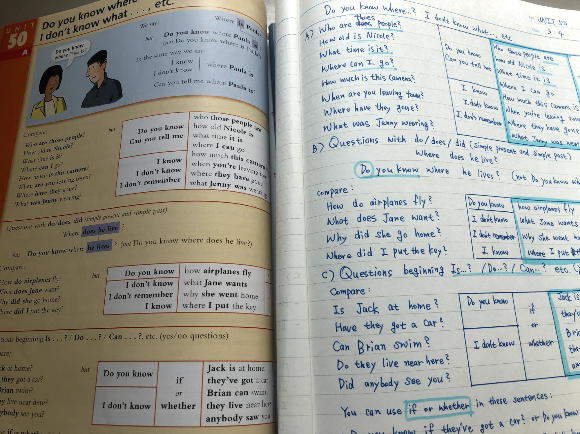 UNIT
50
A
Do you know where
I don't know what . . . , etc.
We say:
Where is Paula?
but
Do you know where Paula is
Do you know
where Paula is?
In the same way we say:
I know
I don't know
where Paula is
Can you tell me where Paula
Compare:
Who are those people?
How old is Nicole?
What time is it?
Where can I go?
How much is this camera?
When are you leaving
Where have they gone?
What was Jenny wearing?
but
Do you know
Can you tell me
I know
I don't know
I don't remember
who those people are
how old Nicole is
what time it is
where I can go
how much this camera
when you're leaving
where they have
what Jenny was
Questions with do/does/did (simple present and simple past)
Where does he live?
but
Do you know where he lives ? (not Do you know where does he live?)
Compare:
How do airplanes fly?
What does Jane want?
Why did she go home?
Where did I put the key?
but
Do you know
I don't know
I don't remember
I know
how airplanes fly
what Jane wants
why she went home
where I put the key
beginning Is . . . ? / Do . . . ? / Can . . . ?, etc. (yes/no questions)
but
Do you know
I don't know
if
or
whether
Jack is at home
they've got a car
Brian can swim
they live near here
anybody saw you
Do you know where..? I don't know what ... etc
UNIT 50
A) Who are those people?
How old is Nicole?
What time is it?
Where can I go?
How much is this camera?
When are you leaving town?
Where have they gone?
What was Jenny wearing?
Do you know
Can you tell me
I know
I don't know
I don't remember
who those people are
how old Nicole is
what time it is
where I can go
how much this camera is
when you're leaving
where they have gone
what Jenny was wear
B) Questions with do/does/did (simple present and simple past)
Where does he live?
Do you know where he lives? (not Do you know whe
Compare:
How do airplanes fly?
What does Jane want?
Why did she go home?
Where did I put the key?
Do you know
I don't know
I don't remember
I know
how airplanes fly
what Jane wants
why she went hom
where I put th
C) Questions beginning Is...? / Do..? / Can.. ? etc. (
Compare:
Is Jack at home?
Have they got a car?
Can Brian swim?
Do they live near here?
Did anybody see you?
Do you know
I don't know
if
or
whether
You can use if or whether in these sentences:
Do you know if they've got a car? or Do you know